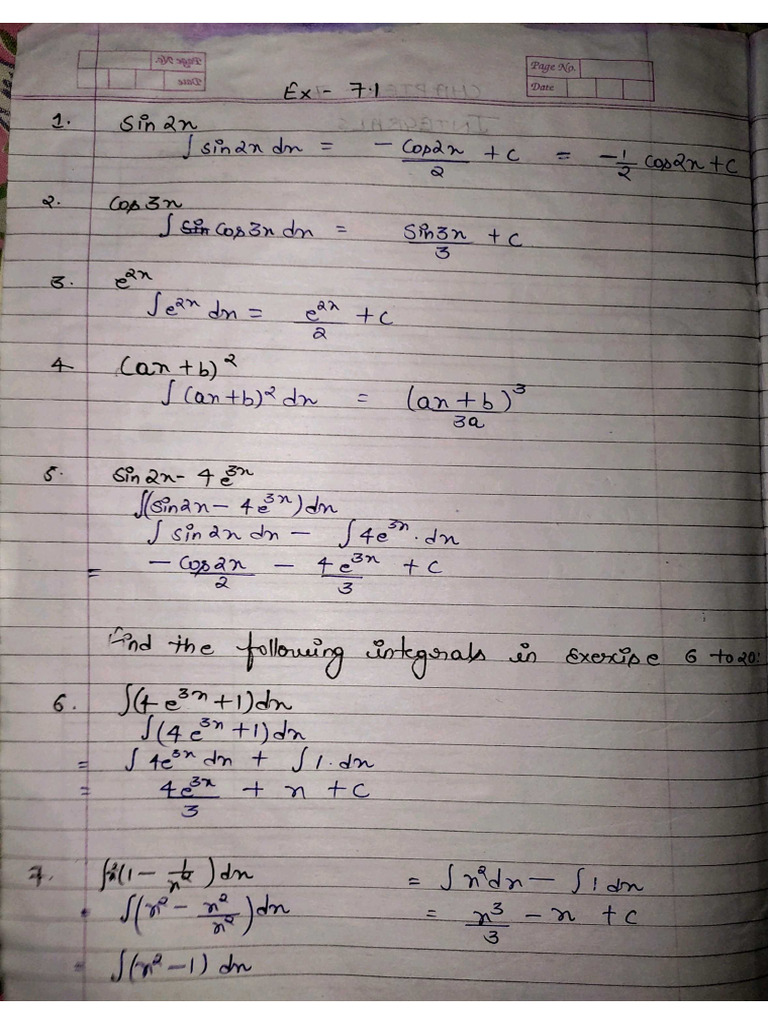 Page No.
Date
Ex:- 7.1
1. sin 2x
∫ sin2x dx = - cos2x/2 + c = -1/2 cos2x + c
2. cos 3x
∫ cos3x dx = sin3x/3 + c
3. e^2x
∫ e^2x dx = e^2x/2 + c
4 (ax + b)^2
∫ (ax+b)^2 dx = (ax + b)^3/3a
5. sin 2x - 4 e^3x
∫(sin2x - 4e^3x) dx
∫ sin 2x dx - ∫ 4e^3x. dx
= - cos2x/2 - 4e^3x/3 + c
Find the following integrals in exercise 6 to 20:
6. ∫(4 e^3x + 1) dx
∫ (4 e^3x + 1) dx
= ∫ 4e^3x dx + ∫ 1. dx
= 4e^3x/3 + x + c
7. ∫x^2(1 - 1/x^2) dx
= ∫(x^2 - x^2/x^2) dx
= ∫(x^2 - 1) dx
= ∫ x^2 dx - ∫ 1 dx
= x^3/3 - x + c